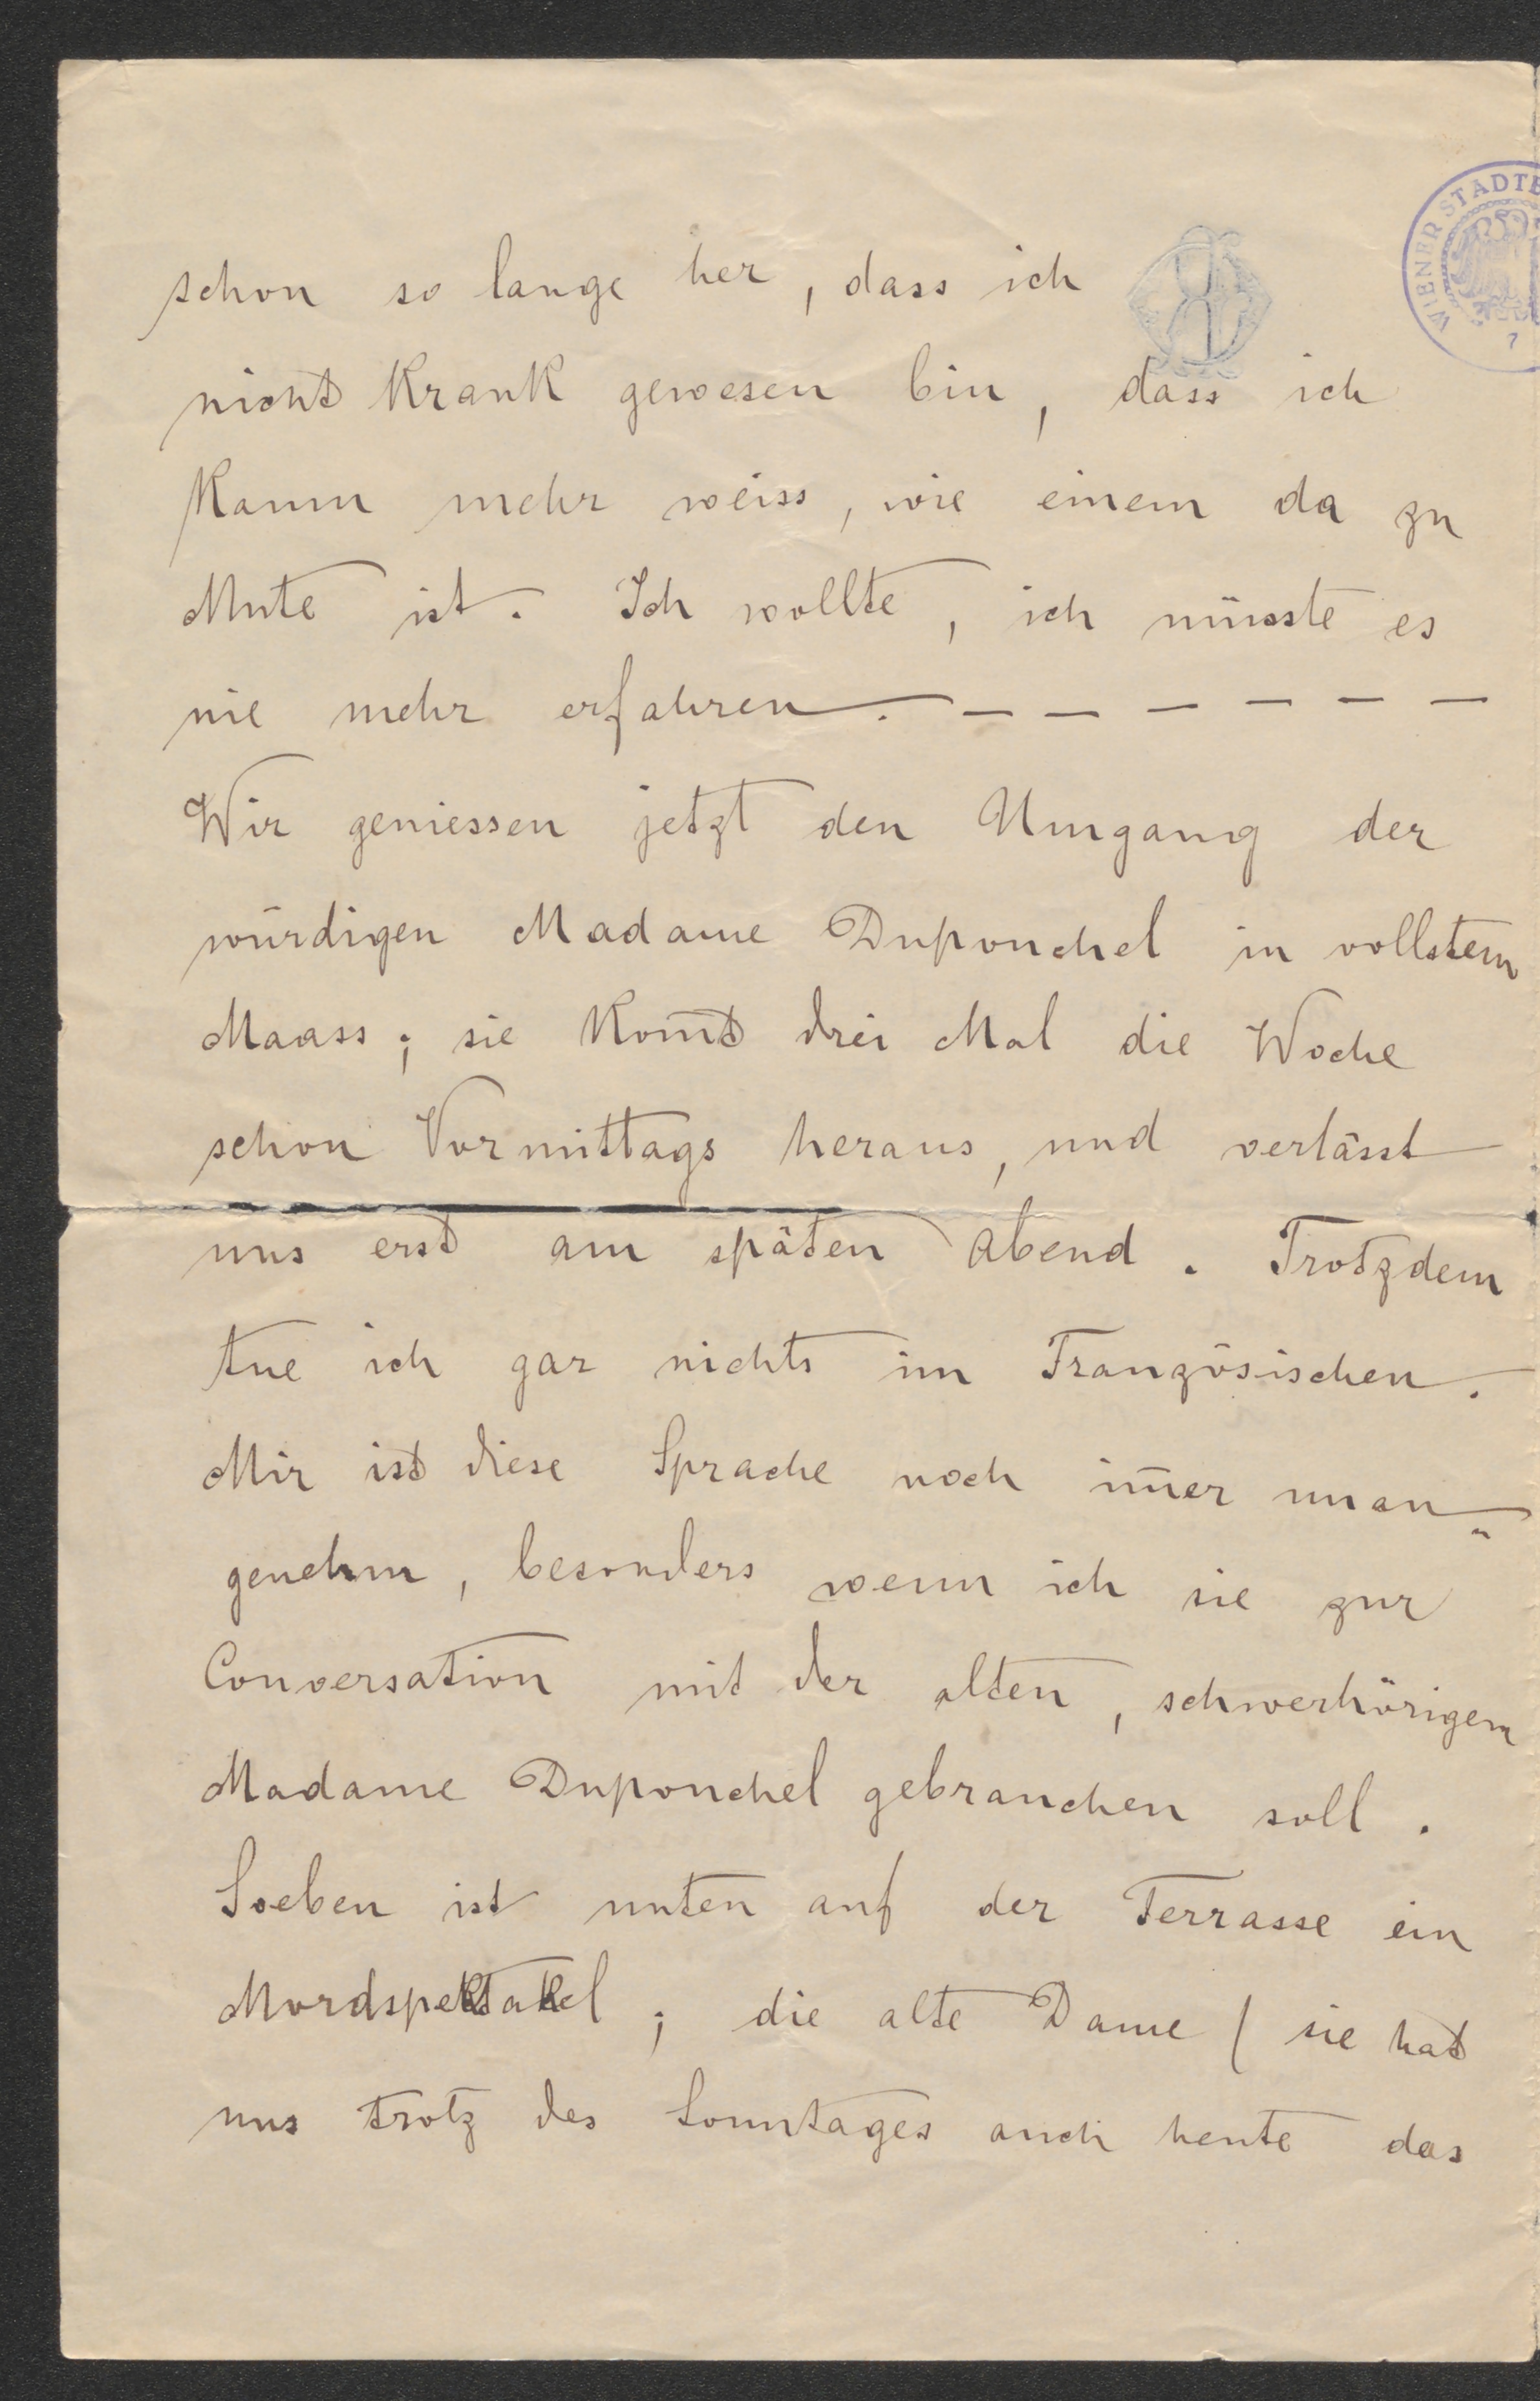 WIENER STADTB
7
schon so lange her, dass ich
nicht krank gewesen bin, dass ich
kaum mehr weiss, wie einem da zu
Mute ist. Ich wollte, ich müsste es
nie mehr erfahren. — — — — — —
Wir geniessen jetzt den Umgang der
würdigen Madame Duponchel in vollstem
Maass; sie kom̄t drei Mal die Woche
schon Vormittags heraus, und verlässt
uns erst am späten Abend. Trotzdem
tue ich gar nichts im Französischen.
Mir ist diese Sprache noch im̄er unan„
genehm, besonders wenn ich sie zur
Conversation mit der alten, schwerhörigen
Madame Duponchel gebrauchen soll.
Soeben ist unten auf der Terrasse ein
Mordspektakel; die alte Dame ( sie hat
uns trotz des Sonntages auch heute das